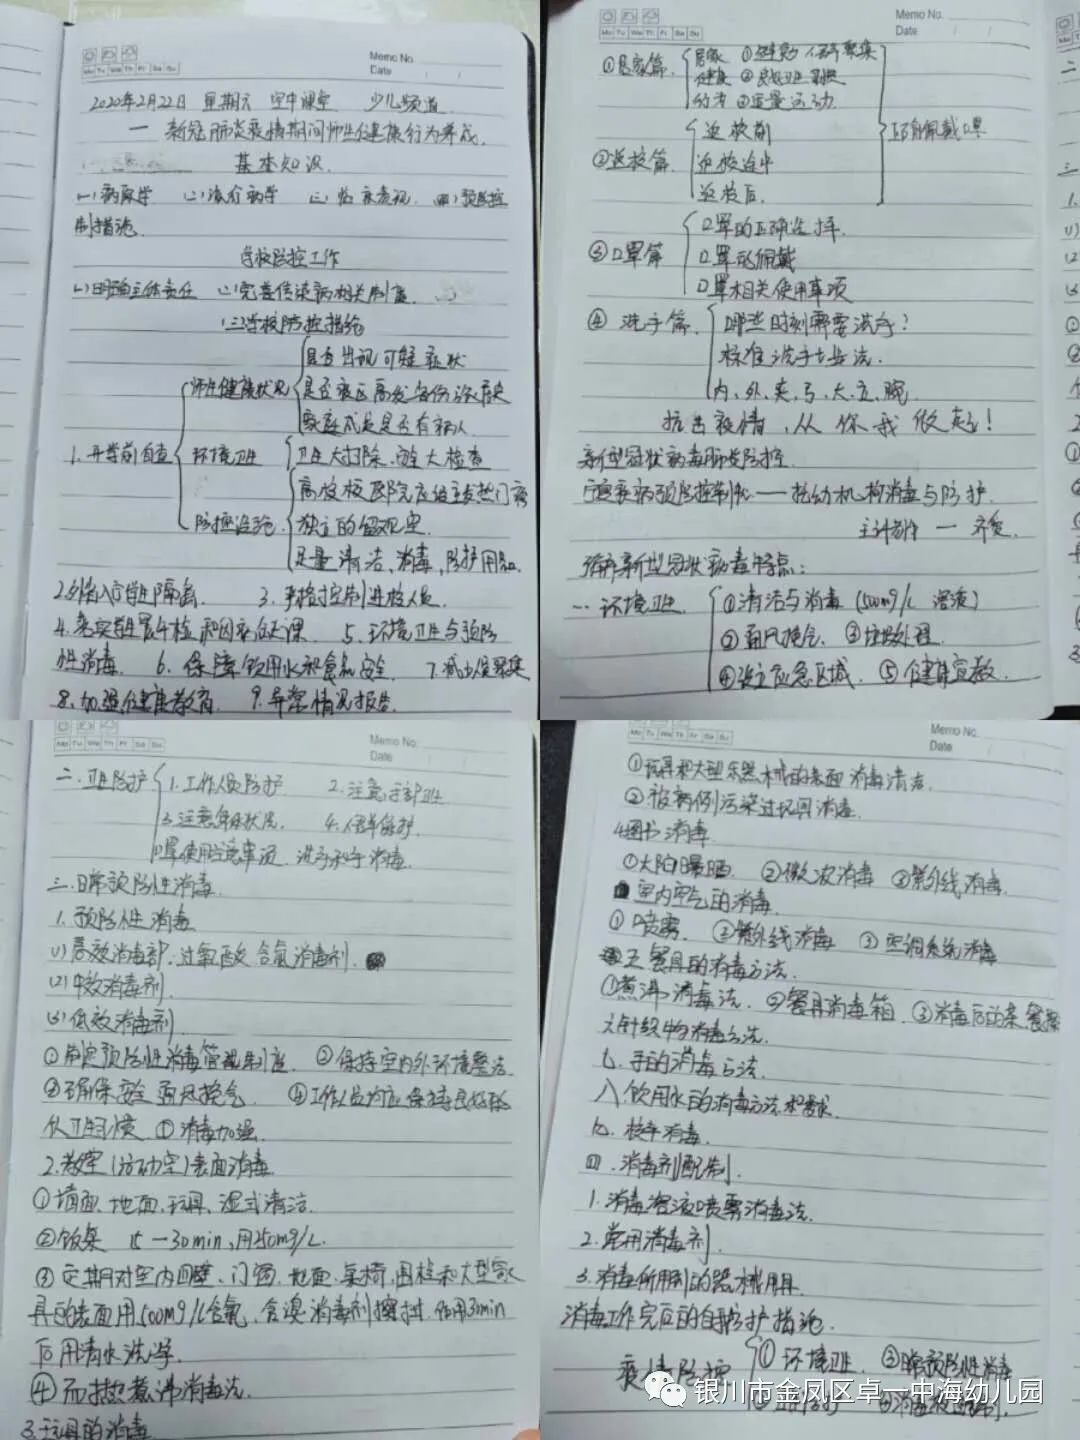 Memo No.
Mo Tu We Th Fr Sa Su
Date
2020年2月22日 星期六 空中课堂 少儿频道
一 新冠肺炎疫情期间师生健康行为养成
基本知识
(一)病原学 (二)流行病学 (三)临床表现 (四)预防控
制措施
学校防控工作
(一)明确主体责任 (二)完善传染病相关制度
(三)学校防控措施
是否出现可疑症状
师生健康状况 是否疫区高发省份
家庭成员是否有病人
1.开学前自查 环境卫生 卫生大扫除、大检查
高校校医院应设立发热门诊
防控设施 独立的留观室
足量清洁、消毒、防护用品
3.严格控制进校人员
4.落实晨午检和因病缺课 5.环境卫生与预防
性消毒 6.保障饮用水和食品安全 7.减少聚集
8.加强健康教育 9.异常情况报告
Memo No.
Mo Tu We Th Fr Sa Su
Date
①居家篇 居家 ①避免人群聚集
健康 ②良好卫生习惯
③适量运动
返校前
②返校篇 返校途中 正确佩戴口罩
返校后
口罩的正确选择
③口罩篇 口罩的佩戴
口罩相关使用事项
④洗手篇 哪些时刻需要洗手?
标准洗手七步法
内、外、夹、弓、大、立、腕
抗击疫情,从你我做起!
新型冠状病毒肺炎防控
疾病预防控制 —— 托幼机构消毒与防护
新型冠状病毒特点:
一.环境卫生 ①清洁与消毒 (500mg/L 溶液)
②通风换气 ③垃圾处理
④设立应急区域 ⑤健康宣教
Memo No.
Mo Tu We Th Fr Sa Su
Date
二.卫生防护 1.工作人员防护 2.注意手部卫生
3.注意身体状况 4.保护
口罩使用注意事项 洗手和手消毒
三.日常预防性消毒
1.预防性消毒
(1)高效消毒剂:过氧乙酸 含氯消毒剂
(2)中效消毒剂
(3)低效消毒剂
①制定预防性消毒管理制度 ②保持室内外环境整洁
③确保安全 通风换气 ④工作人员均应保持良好的
卫生习惯 ⑤消毒加强
2.教室(活动室)表面消毒
①墙面、地面、玩具、湿式清洁
②饭桌 15—30min,用250mg/L
③定期对室内四壁、门窗、地面、桌椅、围栏和大型家
具的表面用500mg/L含氯、含溴消毒剂擦拭,作用30min
后用清水洗净
④耐热煮沸消毒法
3.玩具的消毒
Memo No.
Mo Tu We Th Fr Sa Su
Date
①玩具和大型器械的表面消毒清洁
②被病例污染过玩具消毒
4.图书消毒
①太阳曝晒 ②微波消毒 ③紫外线消毒
室内空气的消毒
①喷雾 ②紫外线消毒 ③空调系统消毒
五 餐具的消毒方法
①煮沸消毒法 ②餐具消毒箱 ③消毒后的
六 针织物消毒方法
七.手的消毒方法
八 饮用水的消毒方法和要求
九.校车消毒
四.消毒剂配制
1.消毒溶液喷雾消毒法
2.常用消毒剂
3.消毒所用到的器械用具
消毒工作完后的自我防护措施
疫情防控 ①环境卫生 ③日常预防性消毒
②卫生防护 ④消毒液配制
银川市金凤区卓一中海幼儿园